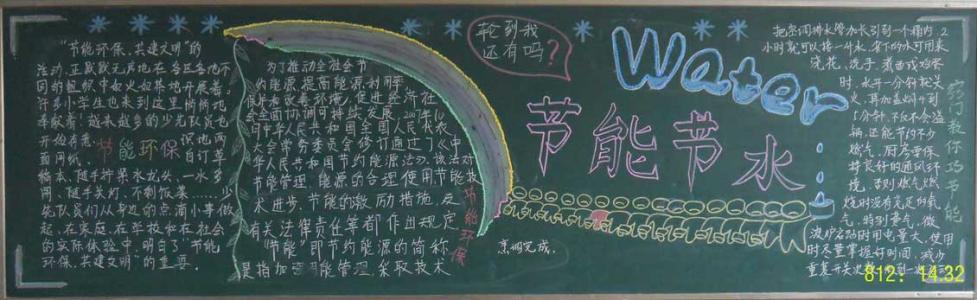 "节能环保、共建文明"的
活动,正默默无声地在各区各地不
同的组织中如火如荼地开展着。
许多小学组也来到这里悄悄地
奉献着!越来越多的少先队员也
开始有意
识地两
面用纸、
自订草
稿本、随手拧紧水龙头、一水多
用、随手关灯、不剩饭菜……少
先队员们从身边的点滴小事做
起,在家庭、在学校和在社会
的实际体验中,明白了"节能
环保、共建文明"的重要。
节能环保
为了推动全社会节
约能源,提高能源利用率
保护和改善环境,促进经济社
会全面协调可持续发展,2007年10
月中华人民共和国全国人民代表
大会常务委员会修订通过了《中
华人民共和国节约能源法》。该法对
节能管理、能源的合理使用、节能技
术进步、节能的激励措施、及
有关法律责任等都作出规定
"节能"即节约能源的简称
是指加强用能管理,采取技术
节能环保
轮到我
还有吗?
Water
节能节水
烹调完成。
窍门教你巧节能
把空调排水管加长引到一个桶内,2
小时就可以接一升水,省下的水可用来
浇花、洗手。煮西或鸡蛋
时,水开一分钟就关
火,再加盖焖5到
8分钟,不仅不会溢
锅,还能节约不少
燃气。厨房要保
持良好的通风环
境,否则燃气燃
烧时没有充足的氧
气,特别费气。微
波炉启动时用电量大,使用
时尽量掌握好时间,减少
重复开关次数,做到一次
812: 14:32